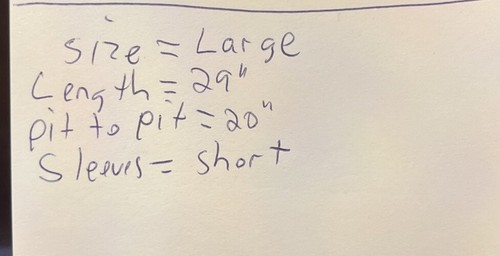 Size = Large
Length = 29"
pit to pit = 20"
Sleeves = short